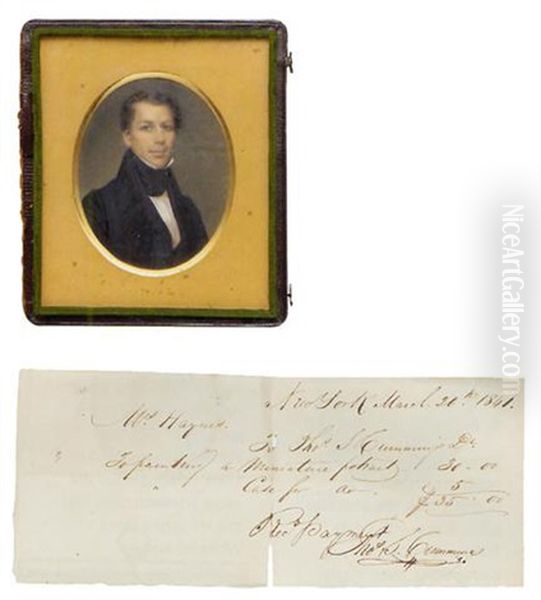 New York March 20th 1841.
Mr Haynes.
To Thos S Cummings Dr.
To painting a Miniature portrait 30-00
" Case for do 5
$35-00
Recd Payment
Thos S. Cummings
NiceArtGallery.com